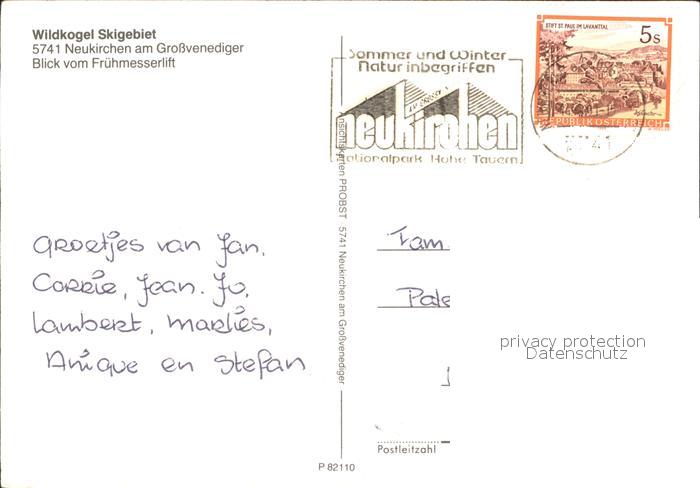 Wildkogel Skigebiet
5741 Neukirchen am Großvenediger
Blick vom Frühmesserlift
Sommer und Winter
Natur inbegriffen
AM GROSSV.
neukirchen
Nationalpark Hohe Tauern
STIFT ST. PAUL IM LAVANTTAL
5s
REPUBLIK ÖSTERREICH
5741
Groetjes van Jan,
Corrie, Jean. Jo,
Lambert, Marlies,
Anique en Stefan
Ansichtskarten PROBST 5741 Neukirchen am Großvenediger
Fam
Pale
privacy protection
Datenschutz
Postleitzahl
P 82110